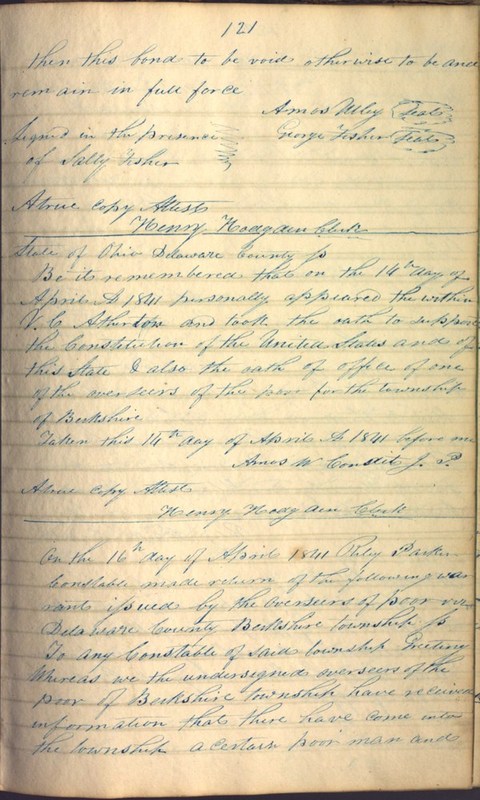 121
then this bond to be void otherwise to be and
remain in full force
Amos Utley (Seal)
Signed in the presence George Fisher (Seal)
of Sally Fisher
A true copy Attest
Henry Hodgden Clerk
State of Ohio Delaware County ss
Be it remembered that on the 14th day of
April A 1841 personally appeared the within
V. C. Atherton and took the oath to support
the Constitution of the United States and of
this State & also the oath of office of one
of the overseirs of the poor for the township
of Berkshire
Taken this 14th day of April A 1841 before me
Amos W Constit J. P.
A true copy Attest
Henry Hodgden Clerk
On the 16th day of April 1841 Parker
Constable made return of the following war
rant issued by the Overseers of poor viz
Delaware County Berkshire township ss
To any Constable of said township Greeting
Whereas we the undersigned overseers of the
poor of Berkshire township have received
information that there have come into
the township a certain poor man and